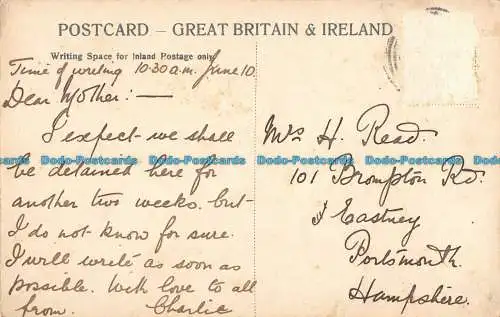 POSTCARD – GREAT BRITAIN & IRELAND
Writing Space for Inland Postage only
Time of writing 10.30 a.m. June 10
Dear Mother: —
I expect we shall
be detained here for
another two weeks. but
I do not know for sure.
I will write as soon as
possible. With love to all
from. Charlie
Mrs H. Read.
Dodo-Postcards Dodo-Postcards Dodo-Postcards Dodo-Postcards Dodo-Postcards
101 Brompton Rd.
Eastney
Portsmouth.
Hampshire.
Dodo-Postcards Dodo-Postcards Dodo-Postcards Dodo-Postcards